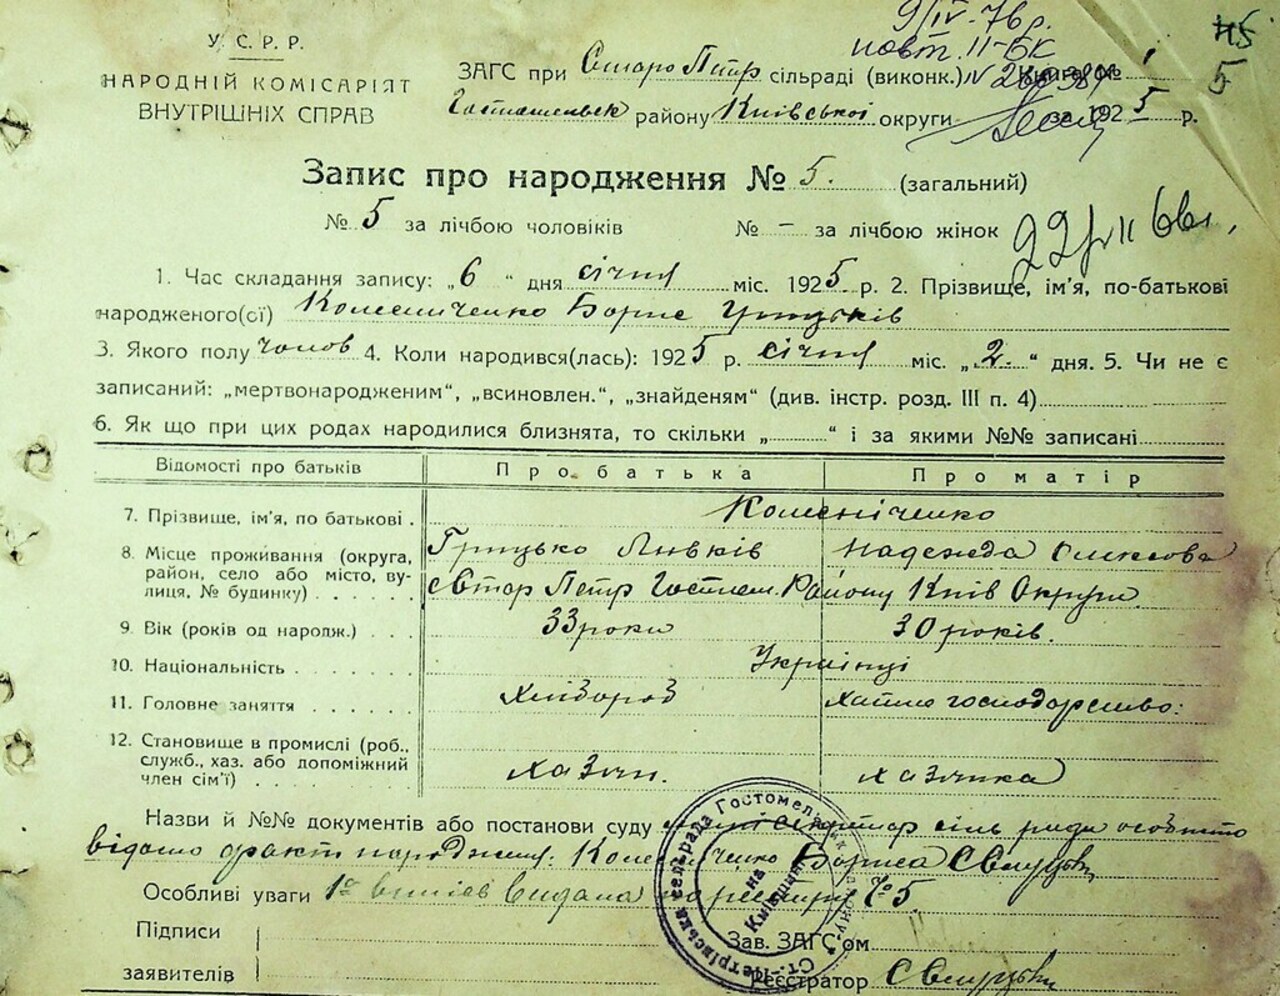 У. С. Р. Р.
НАРОДНІЙ КОМІСАРІЯТ
ВНУТРІШНІХ СПРАВ
9/IV-76 р.
повт. II-БК
45
5
ЗАГС при Старо Петр сільраді (виконк.) Книга № 1
Гостомельск району Київської округи за 1925 р.
Запис про народження № 5. (загальний)
№ 5 за лічбою чоловіків № – за лічбою жінок
1. Час складання запису: „6 “ дня січня міс. 1925 р. 2. Прізвище, ім'я, по-батькові
народженого(ої) Колениченко Борис Грицьків
3. Якого полу чолов 4. Коли народився(лась): 1925 р. січня міс. „2.“ дня. 5. Чи не є
записаний: „мертвонародженим“, „всиновлен.“, „знайденям“ (див. інстр. розд. III п. 4)
6. Як що при цих родах народилися близнята, то скільки „ “ і за якими №№ записані
Відомості про батьків Про батька Про матір
7. Прізвище, ім'я, по батькові . Коленіченко
Грицько Надежда
8. Місце проживання (округа,
район, село або місто, ву-
лиця, № будинку) . . . . . Стар Петр Гостом. Району Київ Округи
9. Вік (років од народж.) . . . 33 роки 30 років.
10. Національність . . . . . . . Українці
11. Головне заняття . . . . . . хлібороб хатнє господарство:
12. Становище в промислі (роб.,
служб., хаз. або допоміжний
член сім'ї) . . . . . . . . хазяін. хазяйка
Назви й №№ документів або постанови суду секретар сіль ради особисто
відомо факт народження: Колениченко Бориса
Особливі уваги видана №5.
Підписи
заявителів
Зав. ЗАГС'ом
Реєстратор
Ст.-Петрівська сель-рада Гостомельськ району
на Київщині